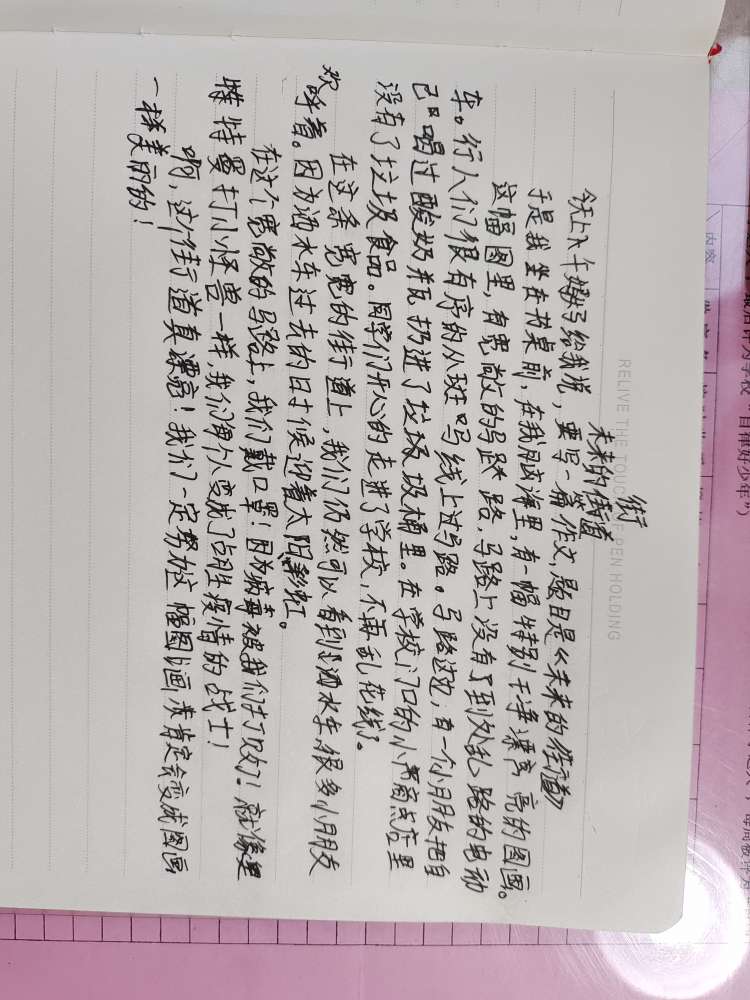 未来的街道
今天上午妈妈给我说，要写一篇作文，题目是《未来的街道》
于是我坐在书桌前，在我脑海里，有一幅特别干净漂亮亮的图画。
这幅图里，有宽敞的马路，马路上没有了到处乱跑的电动
车。行人们很有序的从斑吗线上过马路。马路边边，有一个小朋友把自
己口喝过酸奶瓶扔进了垃圾圾桶里。在学校门口的小商店里
没有了垃圾食品。同学们开心的走进了学校，不再乱花钱了。
在这条宽宽的街道上，我们仍然可以看到洒水车，很多小朋友
欢呼着。因为洒水车过去的日时候迎着太阳彩虹。
在这个宽敞的马路上，我们戴口罩！因为病毒被我们打败了！就像奥
特特曼打小怪兽一样，我们每个人变成了战胜疫情的战士！
啊，这个街道真漂亮！我们一定努力这幅图画，肯定会变成图画
一样美丽的！
RELIVE THE TOUCH OF PEN HOLDING
内容
自律好少年"）